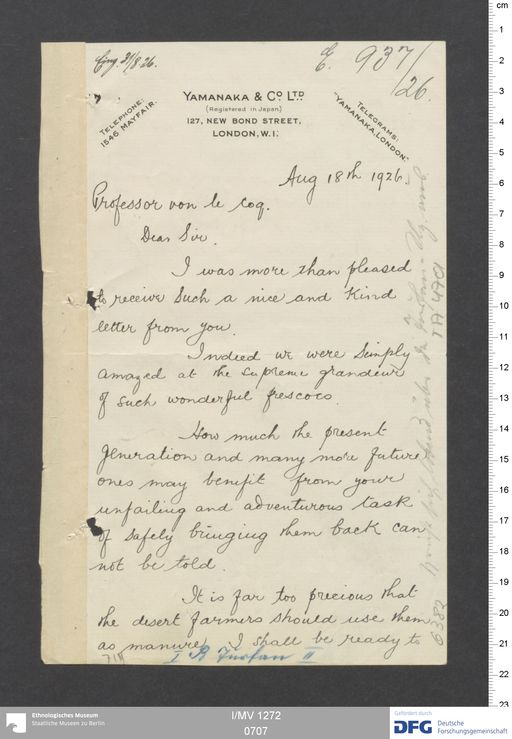 Eing. 21/8 26.
E. 937/26.
TELEPHONE:
1546 MAYFAIR.
YAMANAKA & CO. LTD
(Registered in Japan)
127, NEW BOND STREET,
LONDON, W.1.
TELEGRAMS:
"YAMANAKA, LONDON."
Aug 18th 1926
Professor von le Coq.
Dear Sir.
I was more than pleased
to receive such a nice and kind
letter from you.
Indeed we were simply
amazed at the supreme grandeur
of such wonderful frescoes.
How much the present
generation and many more future
ones may benefit from your
unfailing and adventurous task
of safely bringing them back can
not be told.
It is far too precious that
the desert farmers should use them
as manure. I shall be ready to
I B Turfan II
cm
1
2
3
4
5
6
7
8
9
10
11
12
13
14
15
16
17
18
19
20
21
22
23
Ethnologisches Museum
Staatliche Museen zu Berlin
I/MV 1272
0707
Gefördert durch
DFG Deutsche
Forschungsgemeinschaft